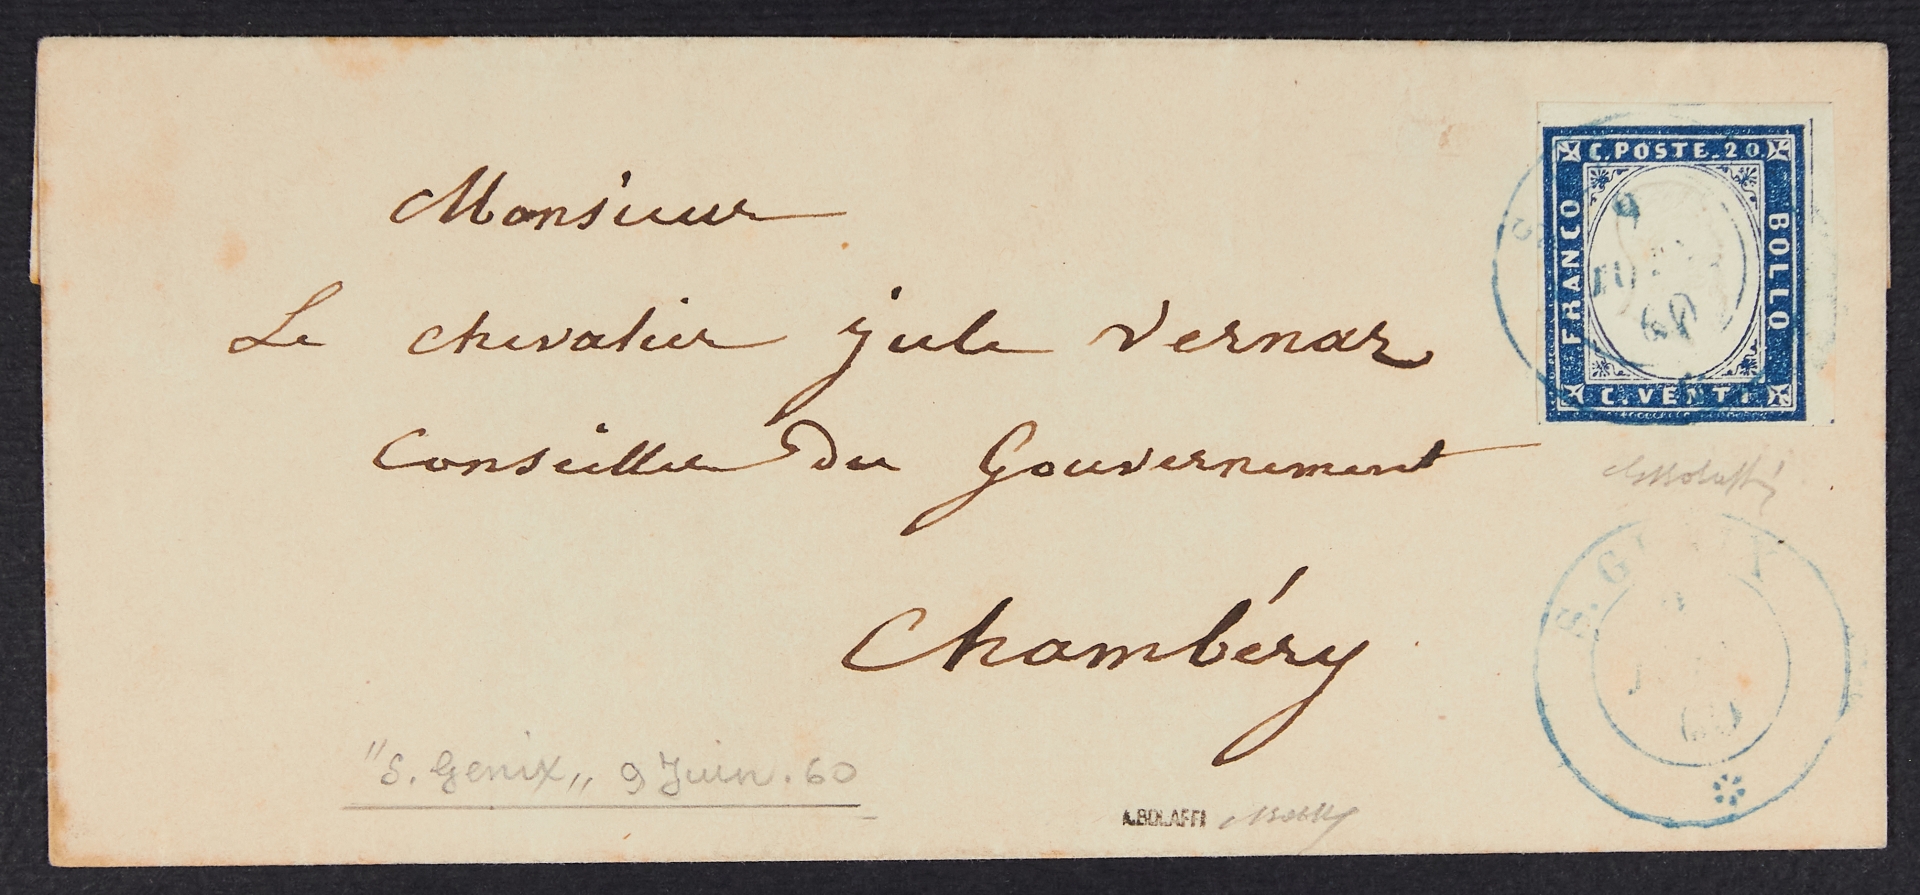 C. POSTE. 20
FRANCO
BOLLO
C. VENTI
9
60
Monsieur
Le chevalier Jule Vernaz
Conseiller du Gouvernement
Chambéry
S. GENIX
60
"S. Genix„ 9 Juin. 60
A. BOLAFFI